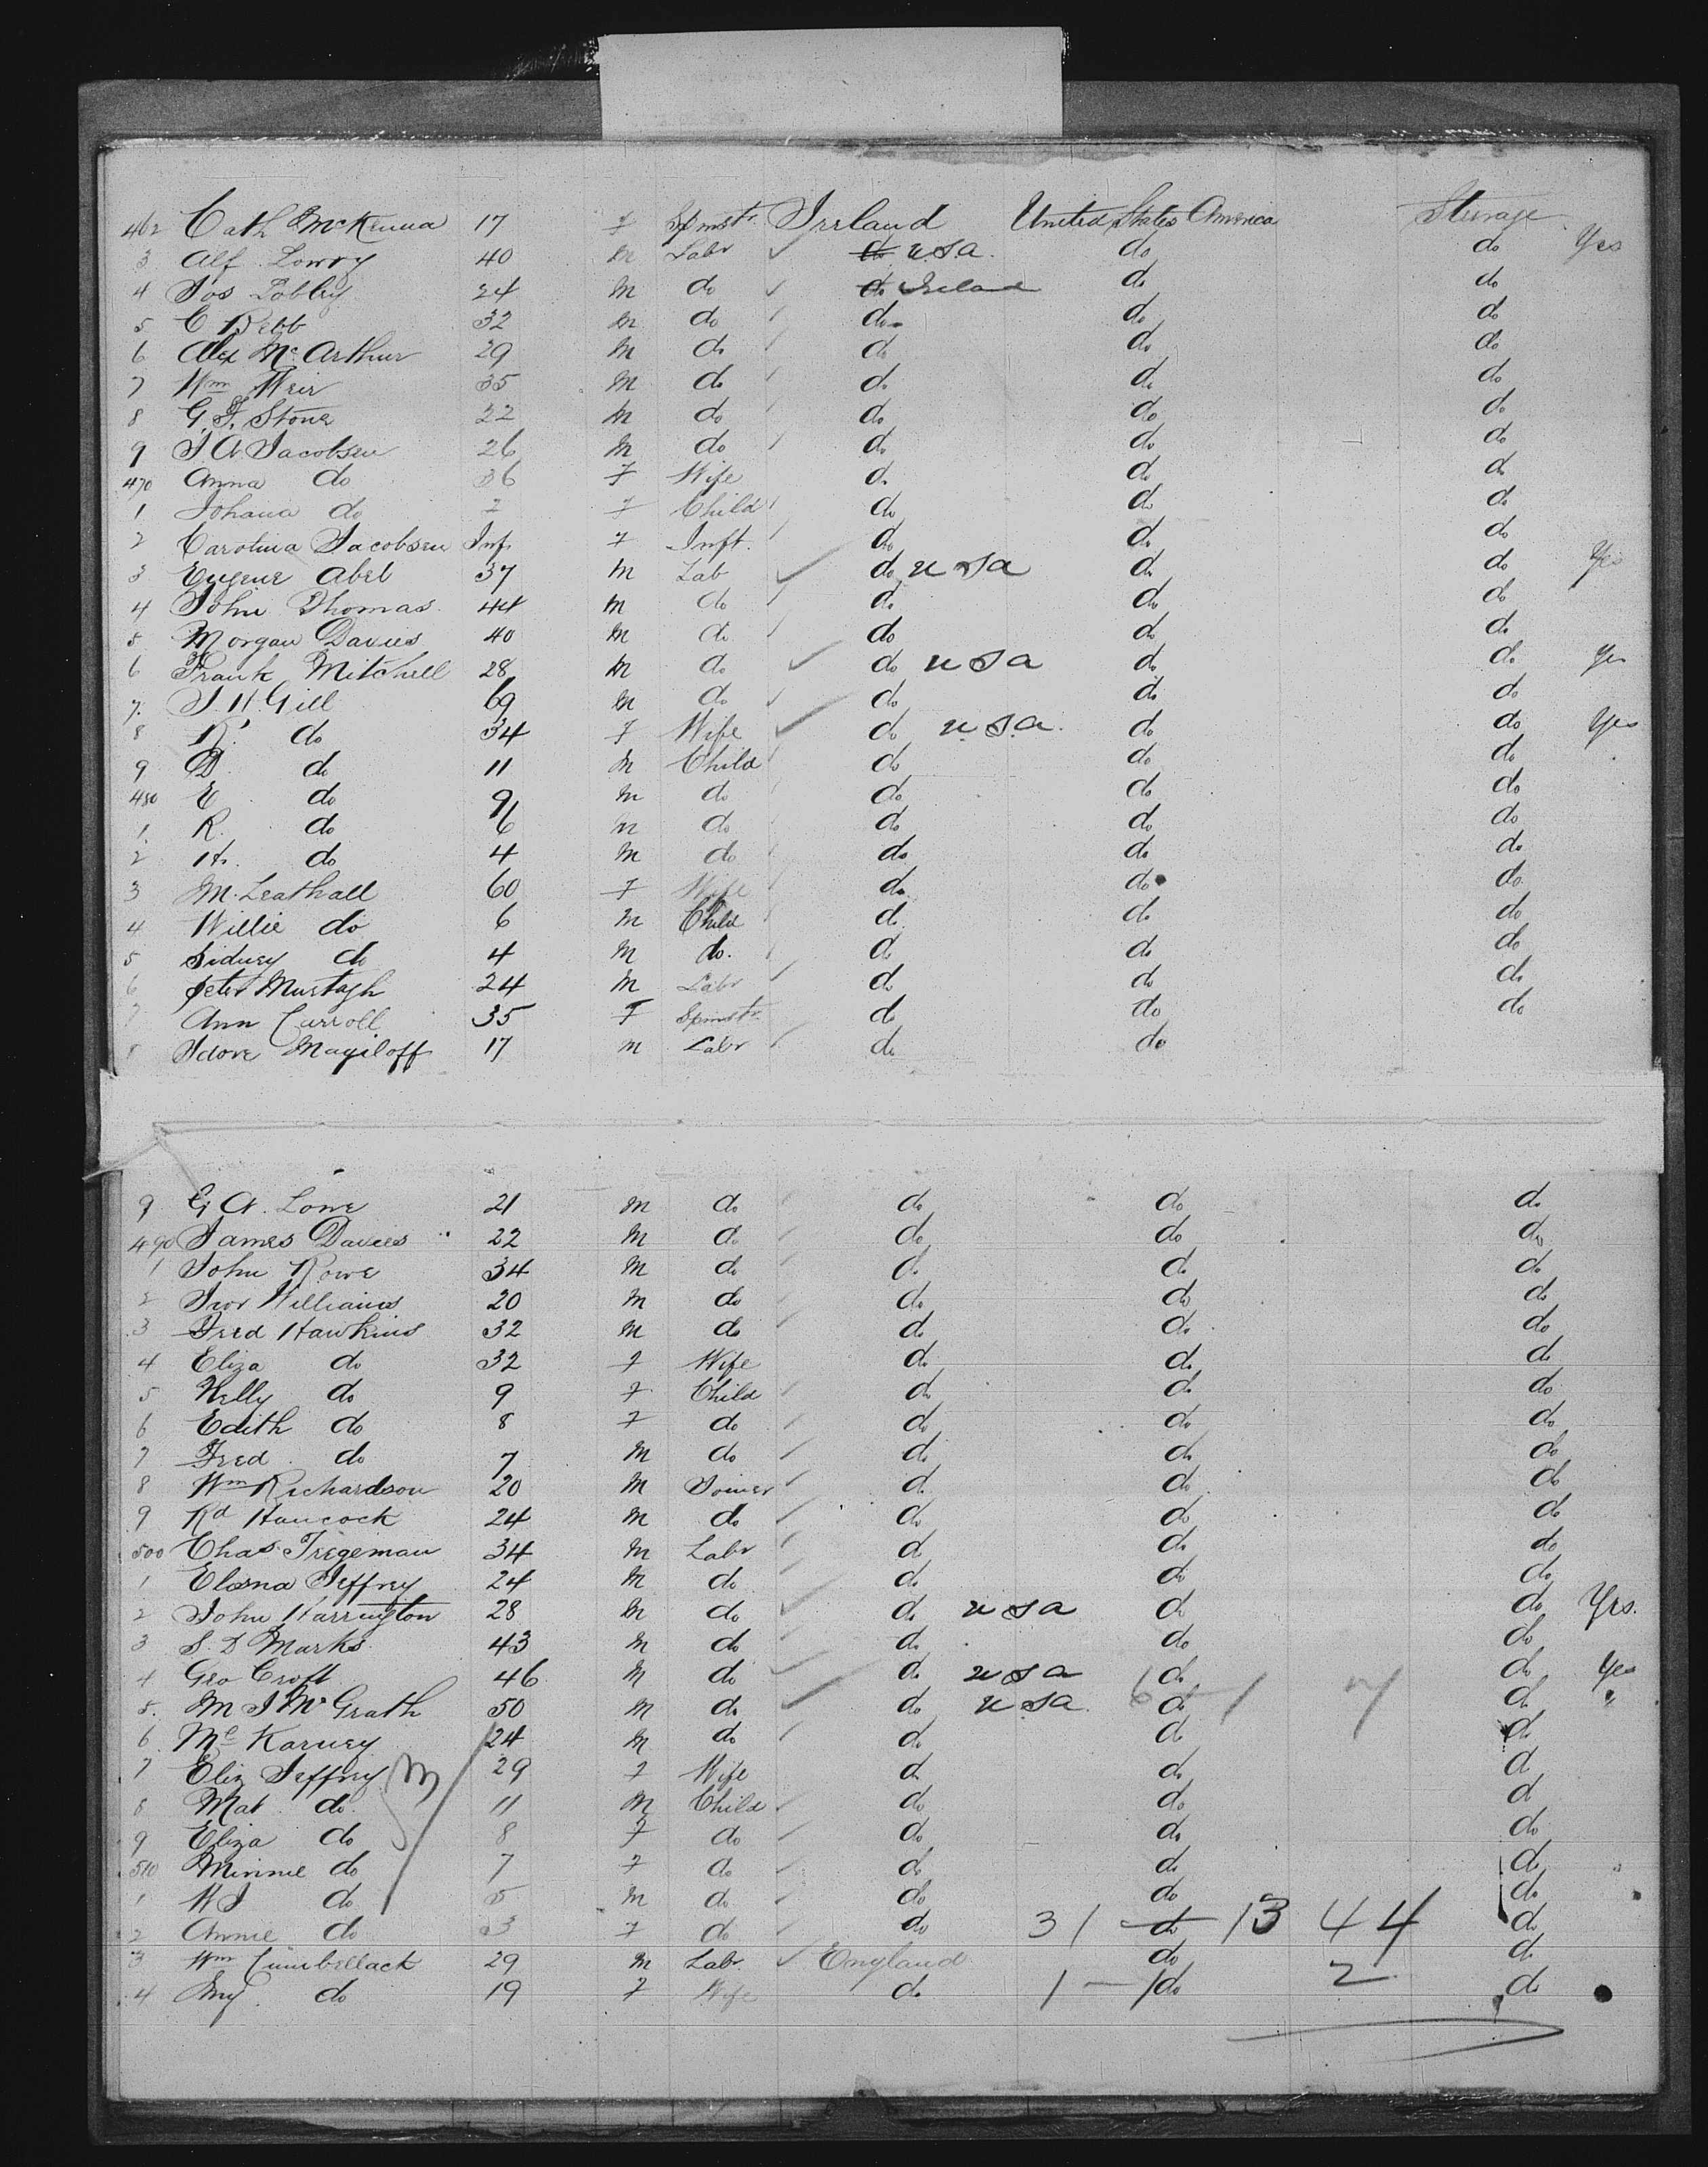 462 Cath McKenna 17 F Spmstr Ireland United States America Steerage
3 Alf Lowry 40 M Labr ✓ do U.S.A. do do Yes
4 Jos Lobley 24 M do ✓ do Ireland do do
5 C Rebb 32 M do do do do
6 Alex McArthur 29 M do do do do
7 Wm Weir 35 M do do do do
8 G. F. Stone 22 M do do do do
9 J A Jacobsen 26 M do do do do
470 Anna do 36 F Wife do do do
1 Johana do 7 F Child do do do
2 Carolina Jacobsen Inf F Inft. do do do
3 Eugene Abel 37 M Lab ✓ do USA do do Yes
4 John Thomas 44 M do do do do
5 Morgan Davies 40 M do do do do
6 Frank Mitchell 28 M do ✓ do USA do do Yes
7 J. H Gill 69 M do ✓ do do do
8 R. do 34 F Wife ✓ do U.S.A. do do Yes
9 D do 11 M Child do do do
480 E do 9 M do do do do
1 R. do 6 M do do do do
2 H. do 4 M do do do do
3 M. Leathall 60 F Wife do do do
4 Willie do 6 M Child do do do
5 Sidney do 4 M do. do do do
6 Peter Murtagh 24 M Labr do do do
7 Ann Carroll 35 F Spinstr do do do
8 Idove Magiloff 17 M Labr do do
9 G A. Lowe 21 M do do do do
490 James Davies 22 M do do do do
1 John Rowe 34 M do do do do
2 Ivor Williams 20 M do do do do
3 Fred Hawkins 32 M do do do do
4 Eliza do 32 F Wife do do do
5 Nelly do 9 F Child do do do
6 Edith do 8 F do do do do
7 Fred do 7 M do do do do
8 Wm Richardson 20 M Joiner do do do
9 Rd Hancock 24 M do do do do
500 Chas Tregeman 34 M Labr do do do
1 Jeffrey 24 M do do do do
2 John Harrington 28 M do ✓ do USA do do Yes.
3 S. D Marks 43 M do do do do
4 Geo Croft 46 M do ✓ do USA do do Yes
5 M J McGrath 50 M do ✓ do USA 6 do 1 7 do "
6 Mc Karney 24 M do do do do
7 Eliz Jeffrey 29 F Wife do do do
8 Mat do 11 M Child do do do
9 Eliza do 8 F do do do do
510 Minnie do 7 F do do do do
1 W J do 5 M do do do do
2 Annie do 3 F do do 31 do 13 44 do
3 Wm 29 M Labr ✓ England do do
4 do 19 F Wife do 1 - 1 do 2 do